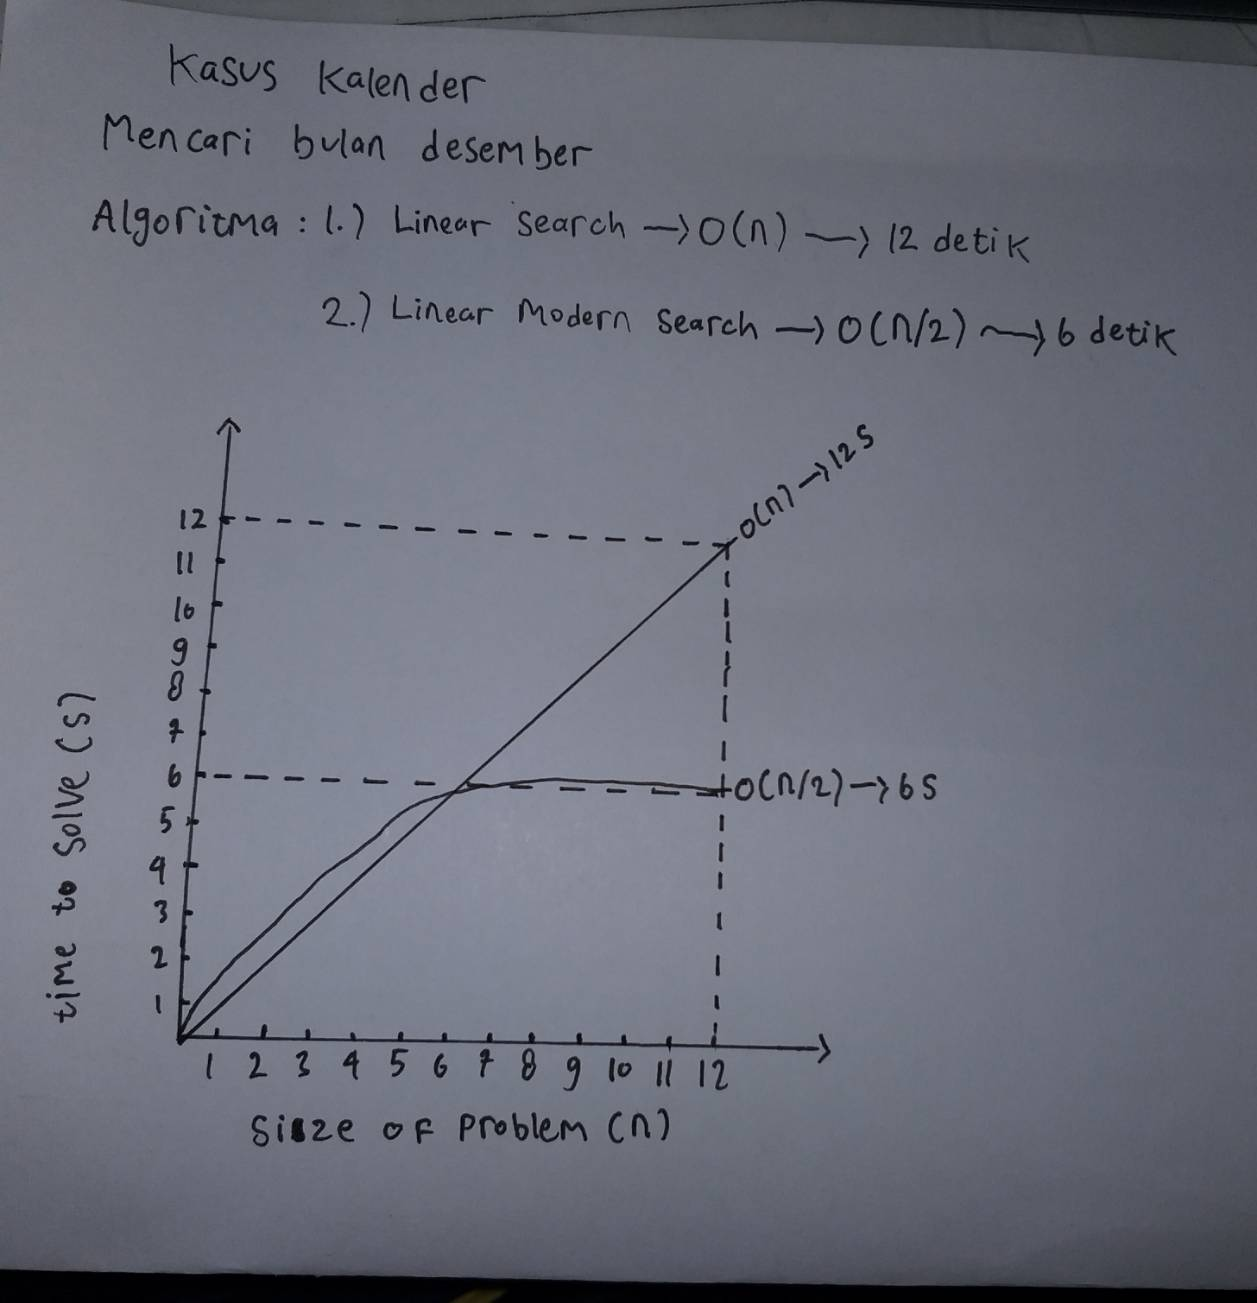 Kasus Kalender
Mencari bulan desember
Algoritma : 1.) Linear Search → O(n) → 12 detik
2.) Linear Modern Search → O(n/2) → 6 detik
O(n) → 12 S
12
11
10
9
8
7
6
5
4
3
2
1
time to solve (s)
O(n/2) → 6 S
1 2 3 4 5 6 7 8 9 10 11 12
Size of Problem (n)